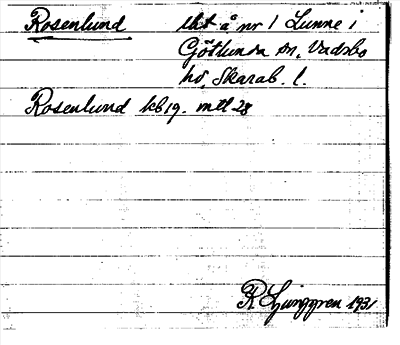 Rosenlund lht å nr 1 Lunne i
Götlunda sn, Vadsbo
hd, Skarab. l.
Rosenlund kb 19. mtl 28
R Ljunggren 1931